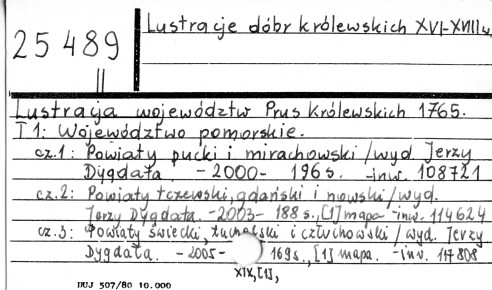 25 489
II
Lustracje dóbr królewskich XVI-XVIII w.
Lustracja województw Prus Królewskich 1765.
T 1: Województwo pomorskie.
cz.1: Powiaty pucki i mirachowski / wyd. Jerzy
Dygdata. - 2000 - 196 s. - inw. 108721
cz.2: Powiaty tczewski, gdański i nowski / wyd.
Jerzy Dygdata. - 2003 - 188 s., [1] mapa - inw. 114624
cz.3: Powiaty świecki, tucholski i człuchowski / wyd. Jerzy
Dygdata. - 2005 - 169 s., [1] mapa. - inv. 117808
XIX, [1],
DUJ 507/80 10.000